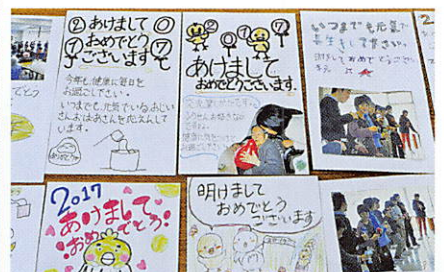 ② あけまして 0
① おめでとう 7
ございます
今年も健康に毎日を
お過ごし下さい。
いつまでも元気でいるおじい
さんおばあさんを応えんして
います。
2 0 1 7
あけまして
おめでとうございます。
いつまでも元気で
長生きして下さい。
あけましておめでとうござい
ます
とう
2017
あけまして
おめでとう!
明けまして
おめでとう
ございます